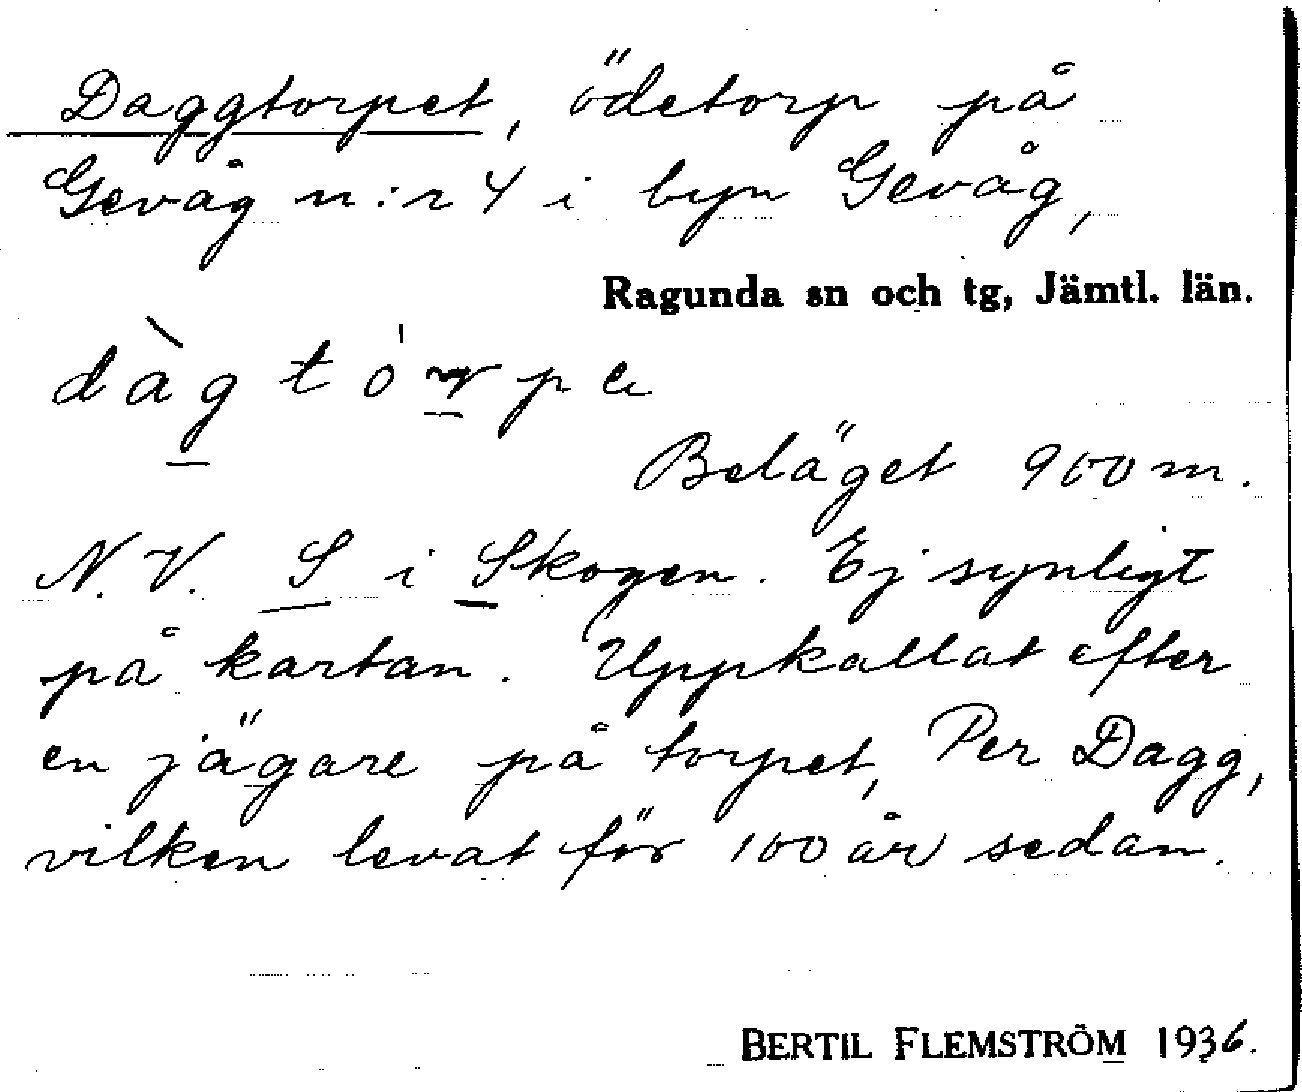 Daggtorpet, ödetorp på
Gevåg n:r 4 i byn Gevåg,
Ragunda sn och tg, Jämtl. län.
dàgtórpe
Beläget 900 m.
N.V. S i Skogen. Ej synligt
på kartan. Uppkallat efter
en jägare på torpet, Per Dagg,
vilken levat för 100 år sedan.
BERTIL FLEMSTRÖM 1936.